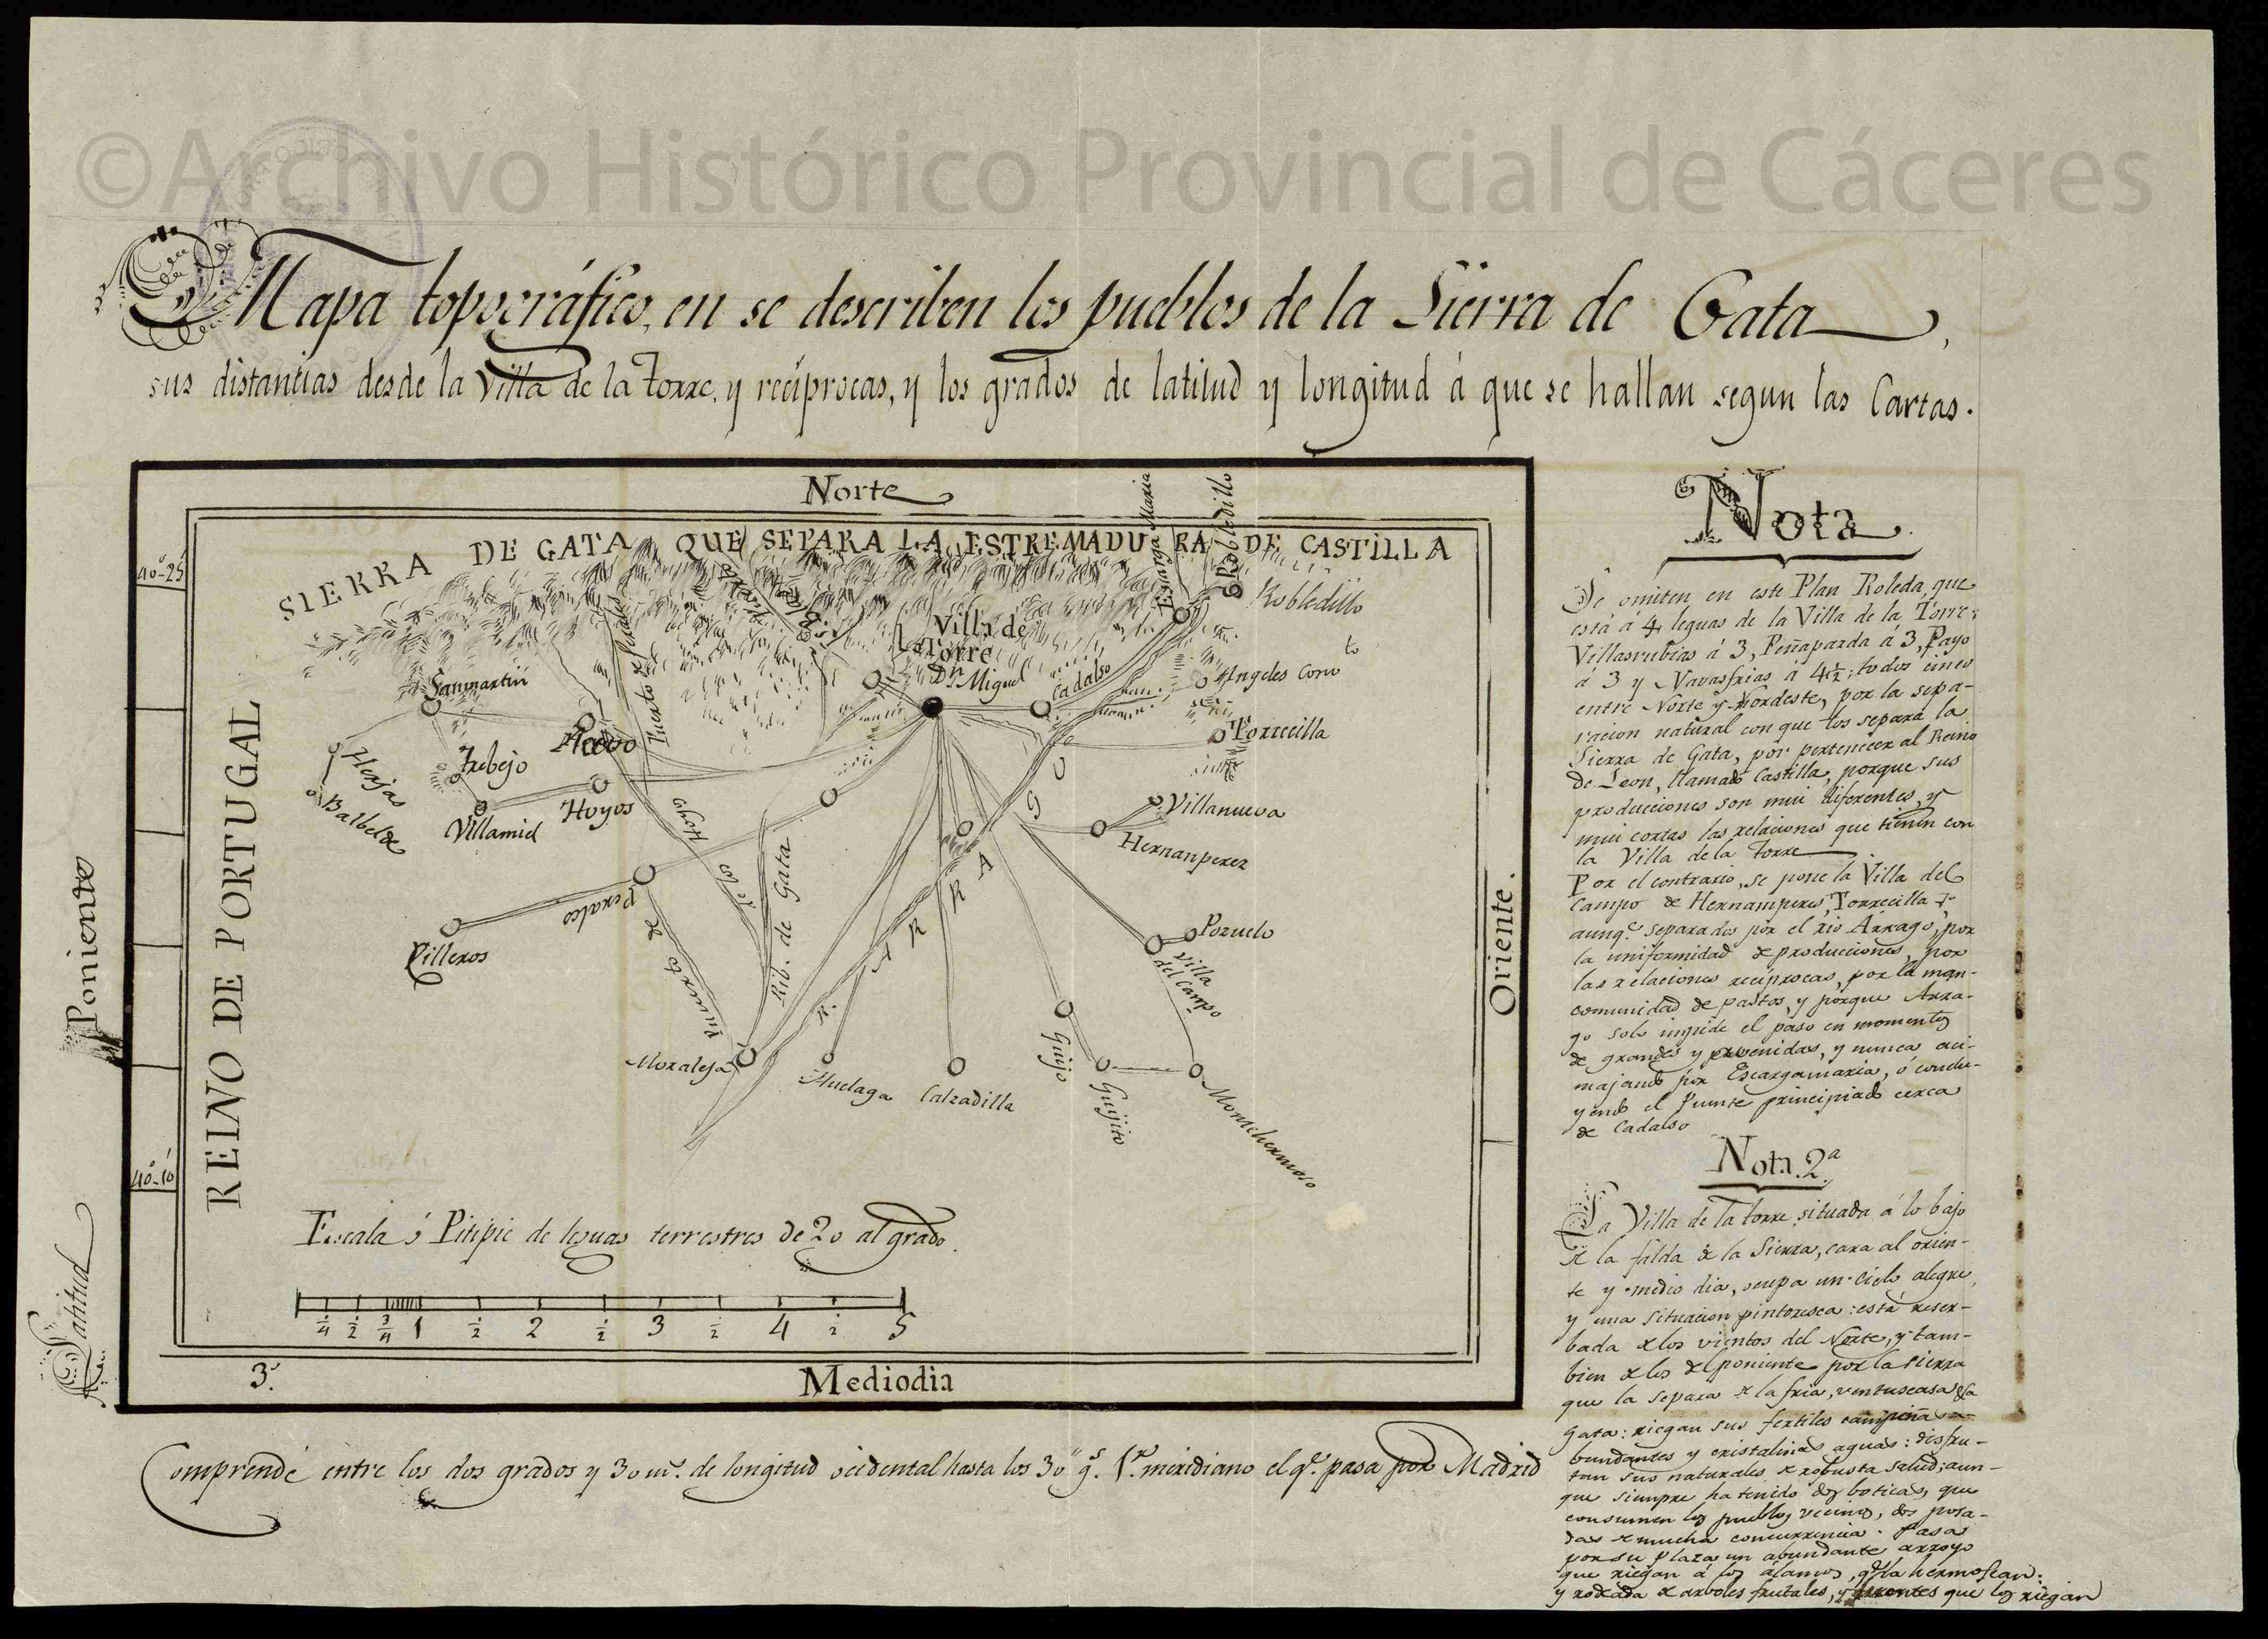 ©Archivo Histórico Provincial de Cáceres
Mapa topográfico, en se describen los pueblos de la Sierra de Gata,
sus distancias desde la Villa de la Torre, y recíprocas, y los grados de latitud y longitud á que se hallan segun las Cartas.
Norte
SIERRA DE GATA QUE SEPARA LA ESTREMADURA DE CASTILLA
40°-25'
Esiarga Maria
Robledillo
Robledillo
Villa de
la Torre
Dn. Miguel
Cadalso
Angeles Convto
Torrecilla
Sanmartin
Puerto de Perales
Acevo
Trebejo
Herjas
Balbelde
Villamiel
Hoyos
Villanueva
Hernanperez
R. ARRAGO
Rib. de Gata
de los Hoyos
Perales
Puerto de
Pilleros
Pozuelo
Villa
del Campo
Moraleja
Huelaga
Calzadilla
Guijo
Guijito
Montehermoso
REINO DE PORTUGAL
Poniente
Oriente.
40°-10'
Latitud
Escala ó Pitipie de leguas terrestres de 20 al grado.
1/4 1/2 3/4 1 1/2 2 1/2 3 1/2 4 1/2 5
3°.
Mediodia
Comprende entre los dos grados y 30 m.s de longitud occidental hasta los 30 g.s 1.r meridiano el q.e pasa por Madrid
Nota.
Se omiten en este Plan Roleda, que
está á 4 leguas de la Villa de la Torre;
Villasrubias á 3, Peñaparda á 3, Payo
á 3 y Navasfrias á 4 1/2; todos cinco
entre Norte y Nordeste, por la sepa-
racion natural con que los separa la
Sierra de Gata, por pertenecer al Reino
de Leon, llamado Castilla, porque sus
producciones son mui diferentes, y
mui cortas las relaciones que tienen con
la Villa de la Torre
Por el contrario, se pone la Villa del
Campo de Hernamperez, Torrecilla +
aunq.e separados por el rio Arrago, por
la uniformidad de producciones, por
las relaciones recíprocas, por la man-
comunidad de pastos, y porque Arra-
go solo impide el paso en momentos
de grandes y avenidas, y nunca enci-
majando por Escargamaria, ó conclu-
yendo el Puente principiado cerca
de Cadalso
Nota. 2a.
La Villa de la torre situada á lo bajo
de la falda de la Sierra, cara al orien-
te y medio dia, ocupa un cielo alegre,
y una situacion pintoresca: está reser-
bada de los vientos del Norte, y tam-
bien de los del poniente por la sierra
que la separa de la fria, ventuscasa de
Gata: riegan sus fertiles campiñas a-
bundantes y cristalinas aguas: disfru-
tan sus naturales de robusta salud; aun-
que siempre ha tenido dos boticas, que
consumen los pueblos vecinos, dos posa-
das de mucha concurrencia. Pasa
por su plaza un abundante arroyo
que riegan á los álamos, q.e la hermosean:
y rodeada de arboles frutales, y fuentes que los riegan